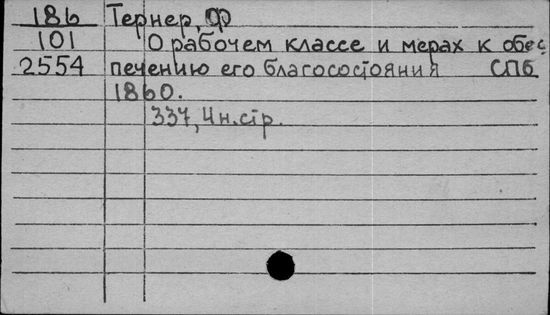 186 Тернер, Ф
101 О рабочем классе и мерах к обес
2554 печению его благосостояния СПб
1860.
337, 4 н.стр.